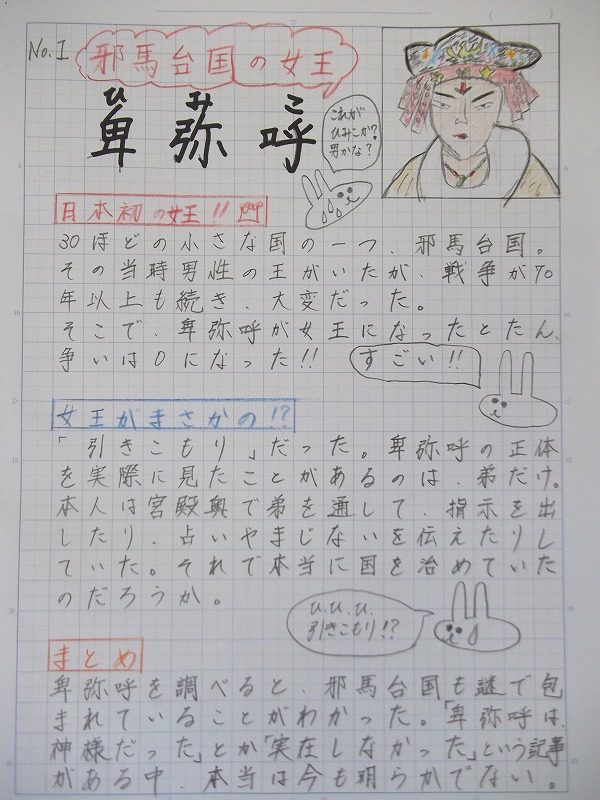 No.1
邪馬台国の女王
ひ み こ
卑弥呼
これが
ひみこか?
男かな?
日本初の女王!!
30ほどの小さな国の一つ、邪馬台国。
その当時男性の王がいたが、戦争が70
年以上も続き、大変だった。
そこで、卑弥呼が女王になったとたん、
争いは0になった!!
すごい!!
女王がまさかの!?
「引きこもり」だった。卑弥呼の正体
を実際に見たことがあるのは、弟だけ。
本人は宮殿奥で弟を通して、指示を出
したり、占いやまじないを伝えたりし
ていた。それで本当に国を治めていた
のだろうか。
ひ、ひ、ひ、
引きこもり!?
まとめ
卑弥呼を調べると、邪馬台国も謎で包
まれていることがわかった。「卑弥呼は、
神様だった」とか「実在しなかった」という記事
がある中、本当は今も明らかでない。